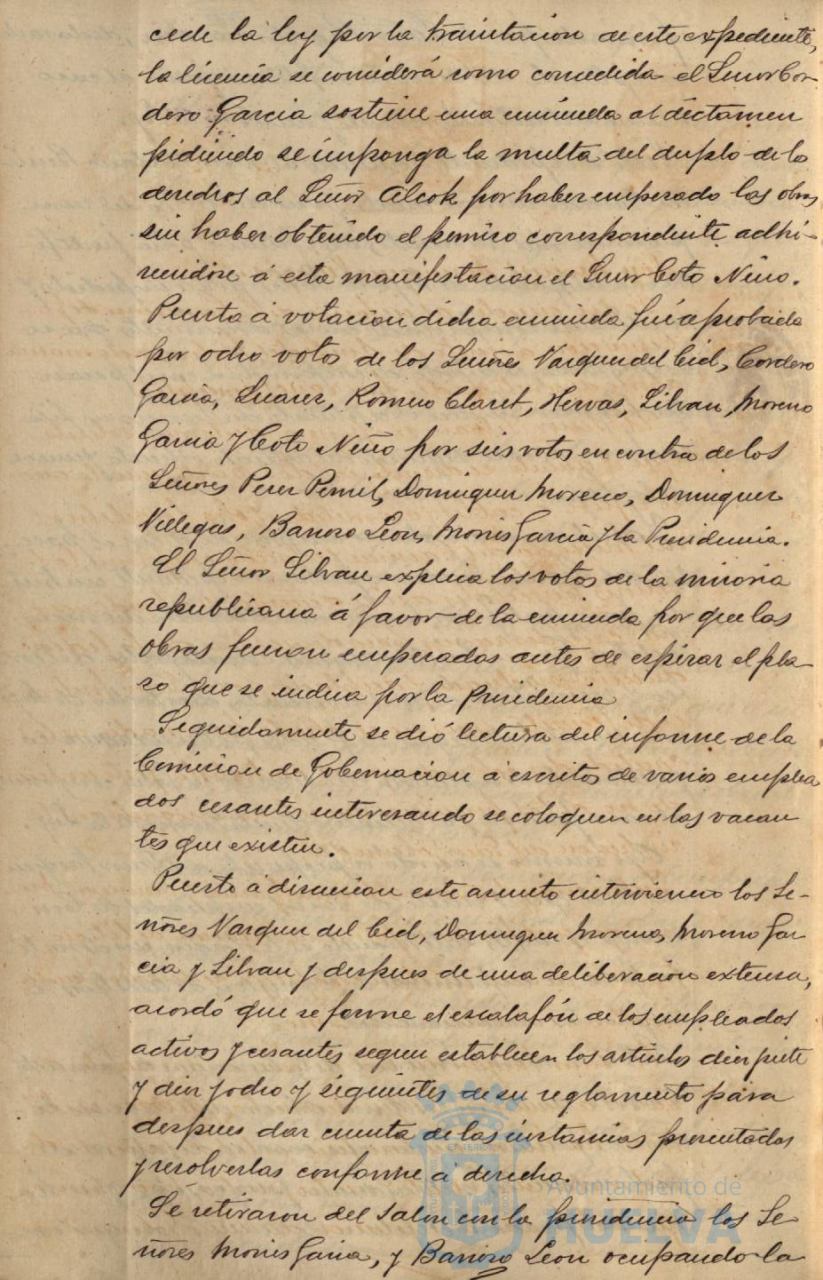 cede la ley por la tramitacion de este expediente,
la licencia se considerá como concedida el Señor Cor-
dero Garcia sostiene una enmienda al dictamen
pidiendo se imponga la multa del duplo de lo
derechos al Señor Alcok por haber empezado las obras
sin haber obtenido el permiso correspondiente adhi-
riendose á esta manifestacion el Señor Coto Niño.
Puesta á votacion dicha enmienda fué aprobada
por ocho votos de los Señores Vazquez del Cid, Cordero
Garcia, Suarez, Romero Claret, Hervas, Silvan, Moreno
Garcia y Coto Niño por seis votos en contra de los
Señores Perez Pernil, Dominguez Moreno, Dominguez
Villegas, Barroso Leon, Monis Garcia y la Presidencia.
El Señor Silvan explica los votos de la minoria
republicana á favor de la enmienda por que las
obras fueron empezadas antes de espirar el pla-
zo que se indica por la Presidencia
Seguidamente se dió lectura del informe de la
Comision de Gobernacion á escritos de varios emplea
dos cesantes interesando se coloquen en las vacan
tes que existen.
Puesto á discusion este asunto intervienen los Se-
ñores Vazquez del Cid, Dominguez Moreno, Moreno Gar
cia y Silvan y despues de una deliberacion extensa,
acordó que se forme el escalafón de los empleados
activos y cesantes segun establecen los articulos diez y siete
y diez y ocho y siguientes de su reglamento para
despues dar cuenta de las instancias presentadas
y resolverlas conforme á derecho.
Se retiraron del salon con la presidencia los Se
ñores Monis Garcia, y Barroso Leon ocupando la
Ayuntamiento de
HUELVA